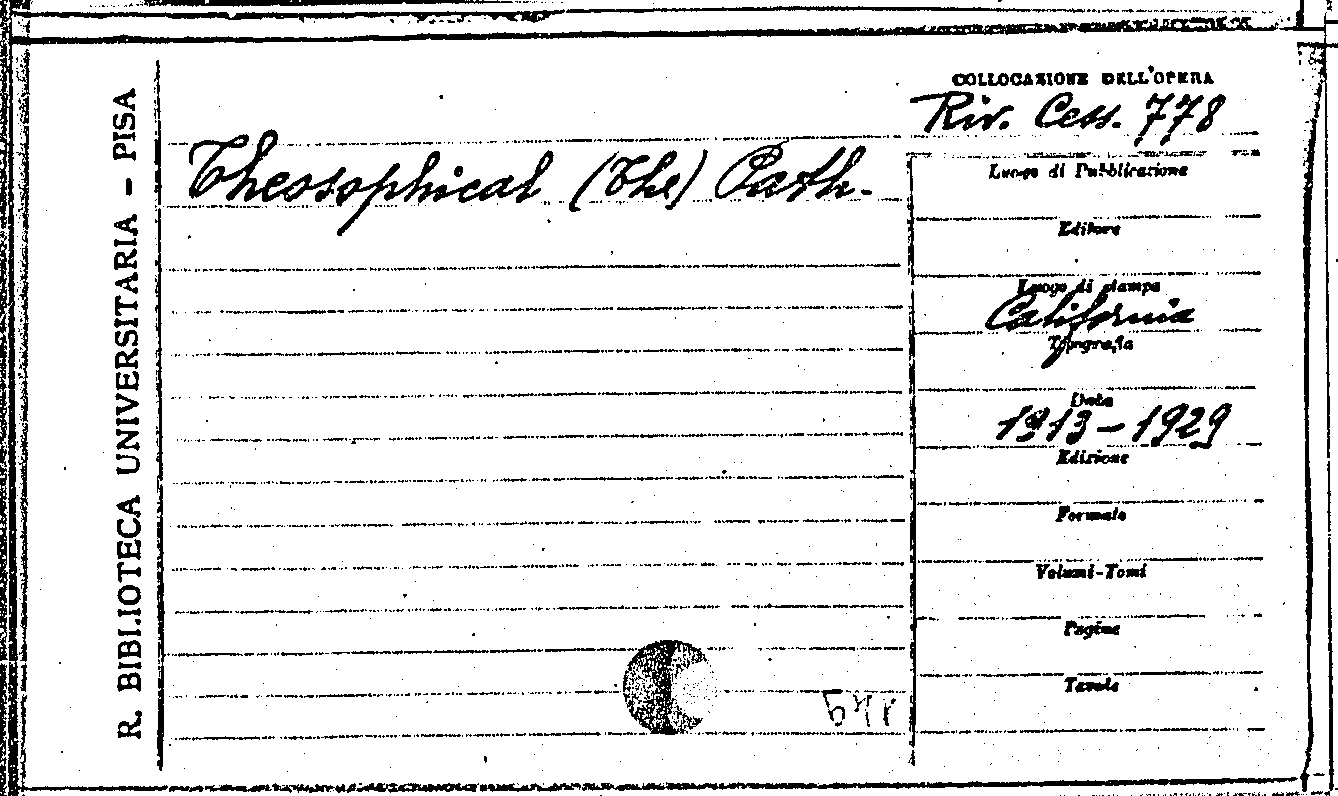 R. BIBLIOTECA UNIVERSITARIA - PISA
COLLOCAZIONE DELL'OPERA
Riv. Cess. 778
Theosophical (The) Path.
Luogo di Pubblicazione
Editore
Luogo di stampa
California
Tipografia
Data
1913-1929
Edizione
Formato
Volumi-Tomi
Pagine
Tavole